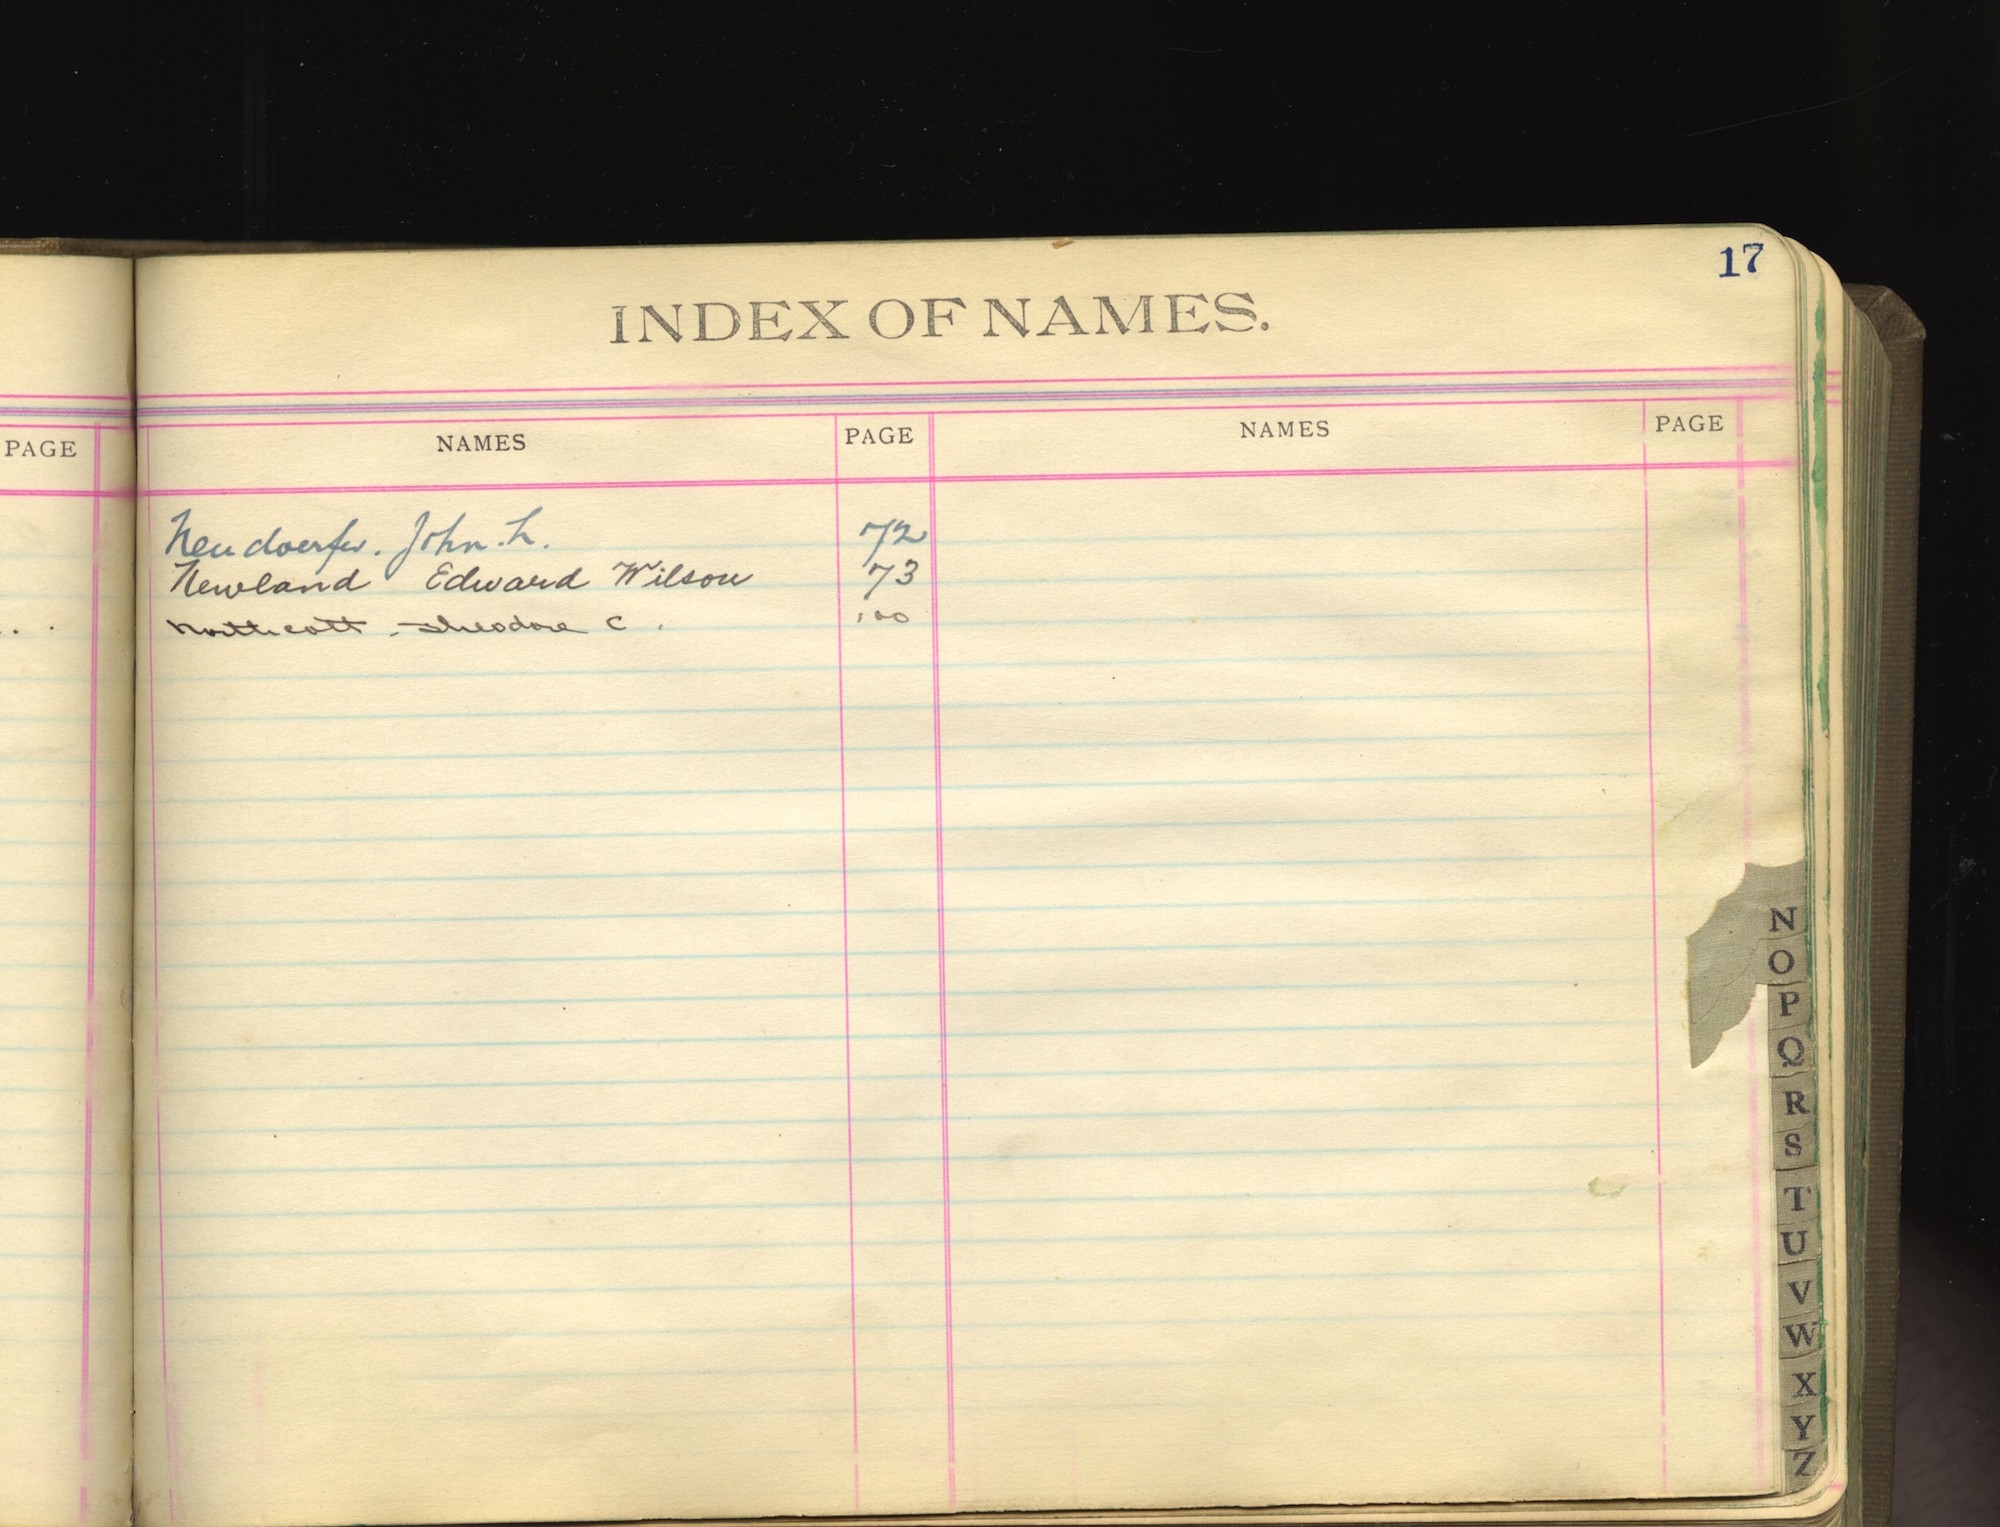 17
INDEX OF NAMES.
PAGE NAMES PAGE NAMES PAGE
Neudoerfer. John. L. 72
Newland Edward Wilson 73
Northcott - Theodore C. 100
N
O
P
Q
R
S
T
U
V
W
X
Y
Z